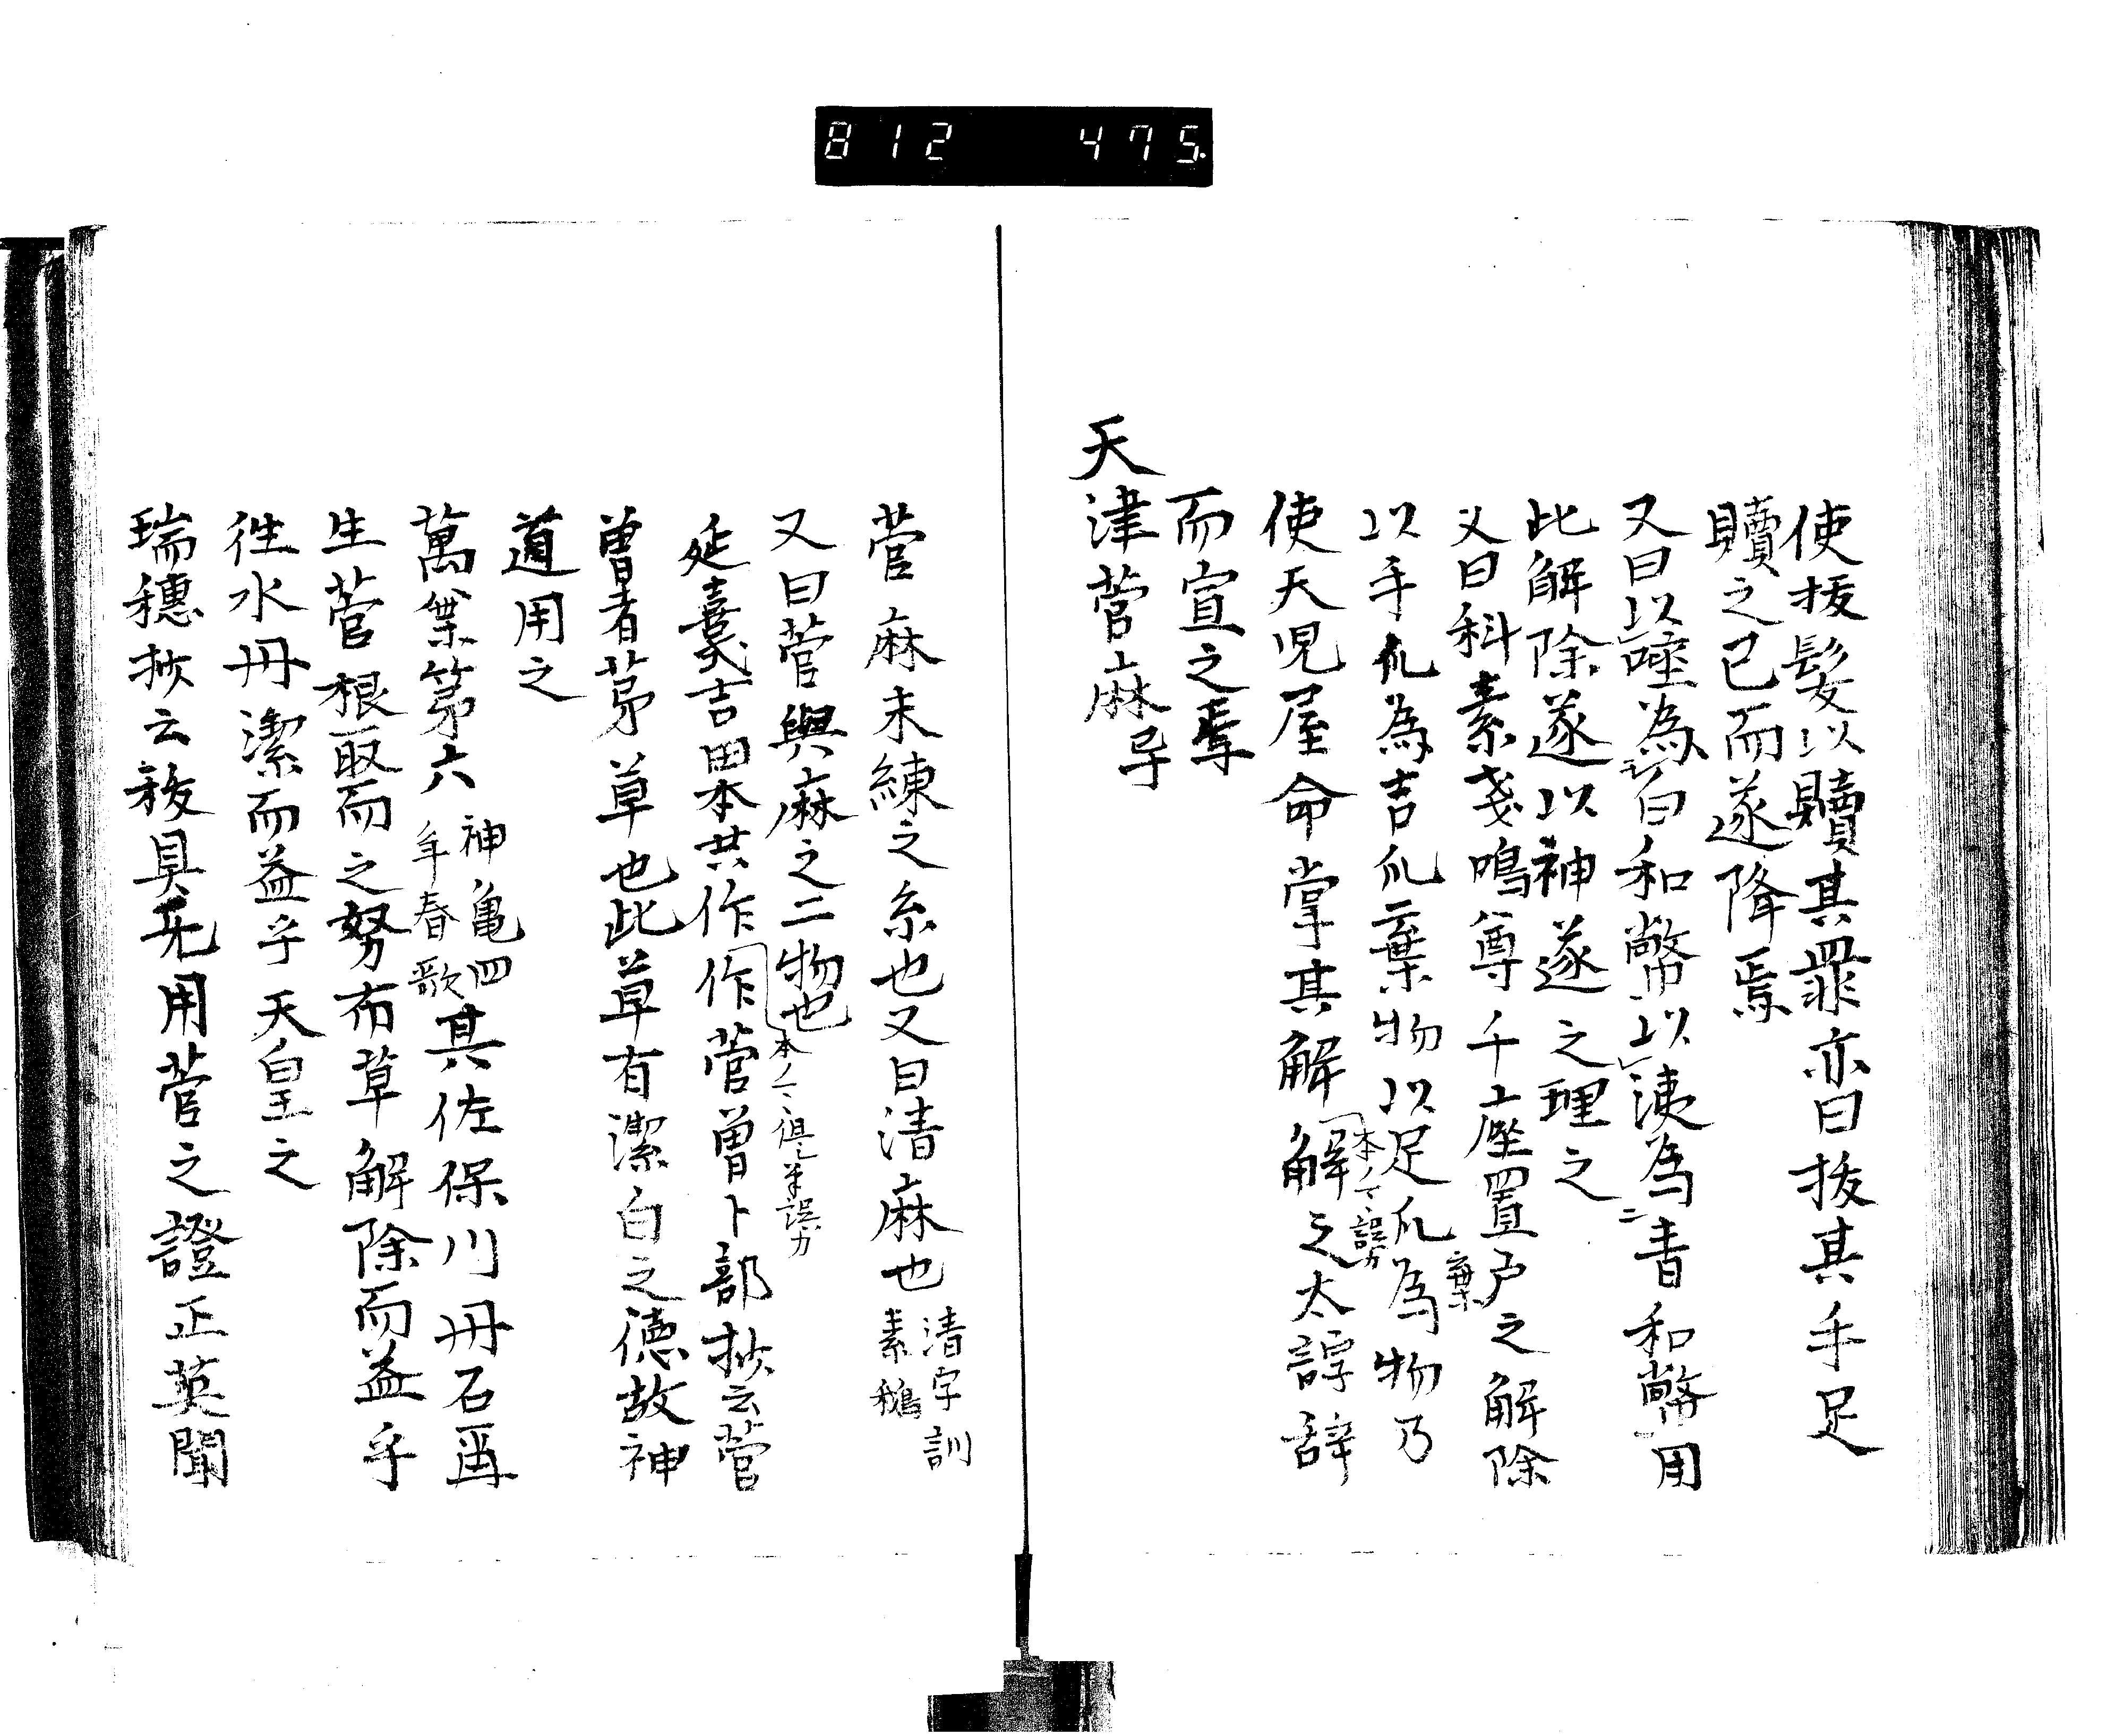 812 475.
使抜髪以贖其罪亦曰抜其手足
贖之已而遂降焉
又曰以唾為白和幣以洟為青和幣用
此解除遂以神遂之理之
又曰科素戔嗚尊千座置戸之解除
以手爪為吉爪棄物以足爪為物乃
棄
使天児屋命掌其解解之太諄辞
本ノマヽ誤カ
而宣之焉
天津菅麻
菅麻未練之糸也又曰清麻也
清字訓
素鵝
又曰菅與麻之二物也
延喜式吉田本共作作菅曽卜部抄云菅
曽者茅草也此草有潔白之徳故神
道用之
萬葉第六神亀四年春歌其佐保川丹石
生菅根取而之努布草解除而益乎
徃水丹潔而益乎天皇之
瑞穂抄云祓具無用菅之證正英聞